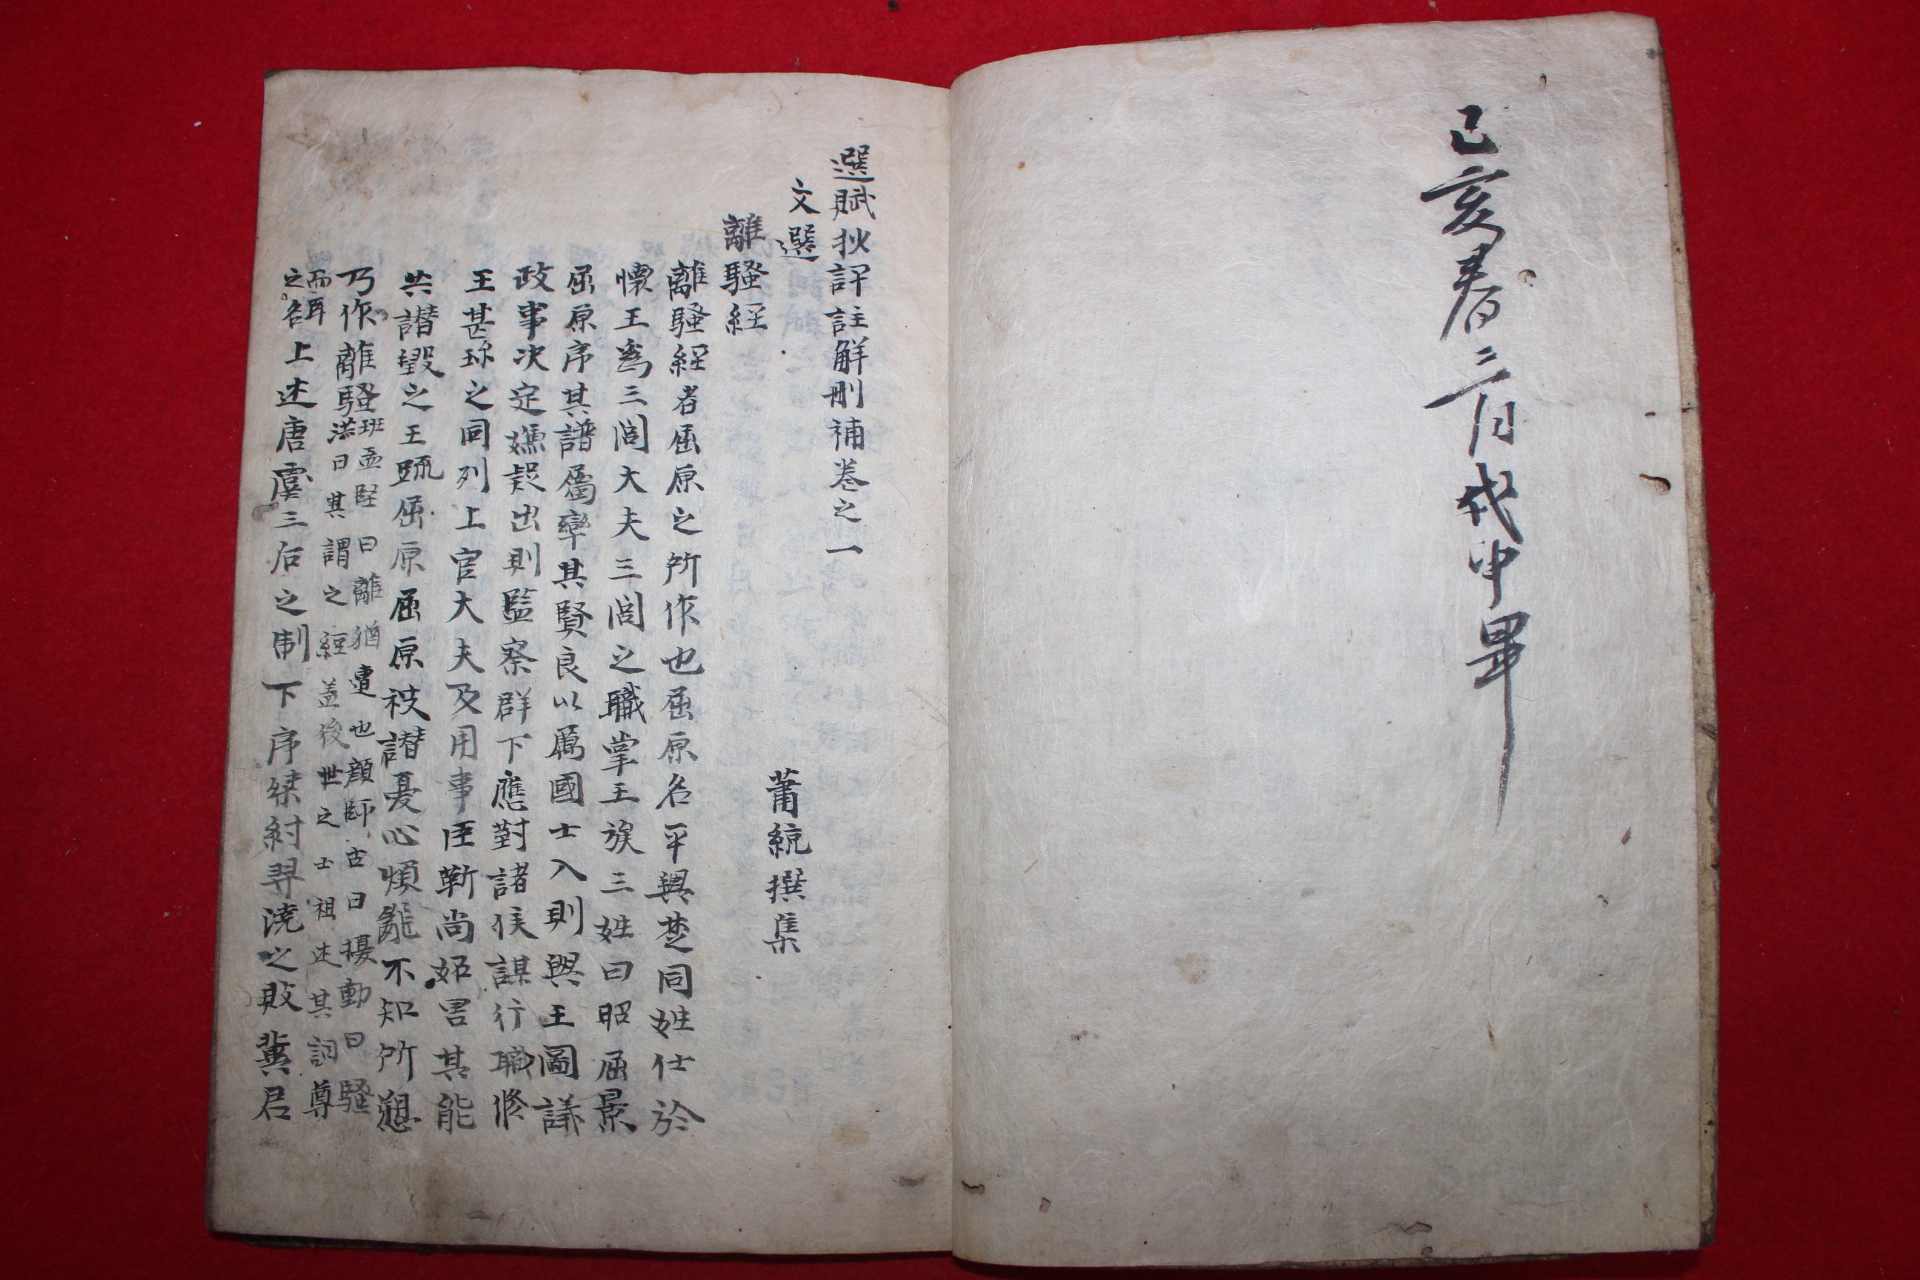 己亥春三月戊申畢
選賦抄評註解刪補卷之一
文選
蕭統撰集
離騷經
離騷經者屈原之所作也屈原名平與楚同姓仕於
懷王爲三閭大夫三閭之職掌王族三姓曰昭屈景
屈原序其譜屬率其賢良以厲國士入則與王圖議
政事決定嫌疑出則監察群下應對諸侯謀行職修
王甚珎之同列上官大夫及用事臣靳尚妬害其能
共譖毀之王疏屈原屈原被譖憂心煩亂不知所愬
乃作離騷班孟堅曰離猶遭也顔師古曰擾動曰騷
洪曰其謂之經盖後世之士祖述其詞尊
而耳
之名上述唐虞三后之制下序桀紂羿澆之敗冀君